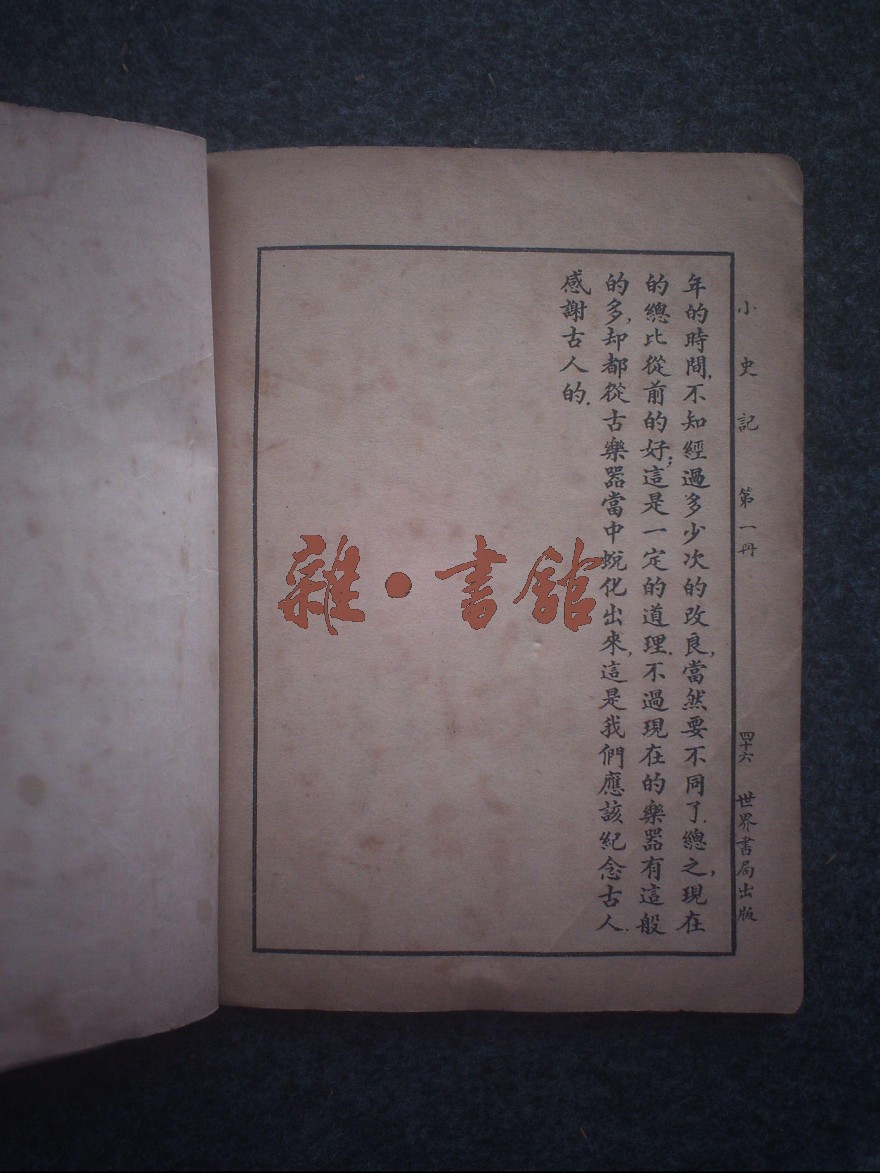 小史記 第一冊 四十六 世界書局出版
年的時間,不知經過多少次的改良,當然要不同了.總之,現在
的總比從前的好;這是一定的道理.不過現在的樂器有這般
的多,却都從古樂器當中蛻化出來,這是我們應該紀念古人.
感謝古人的.
雜·書館